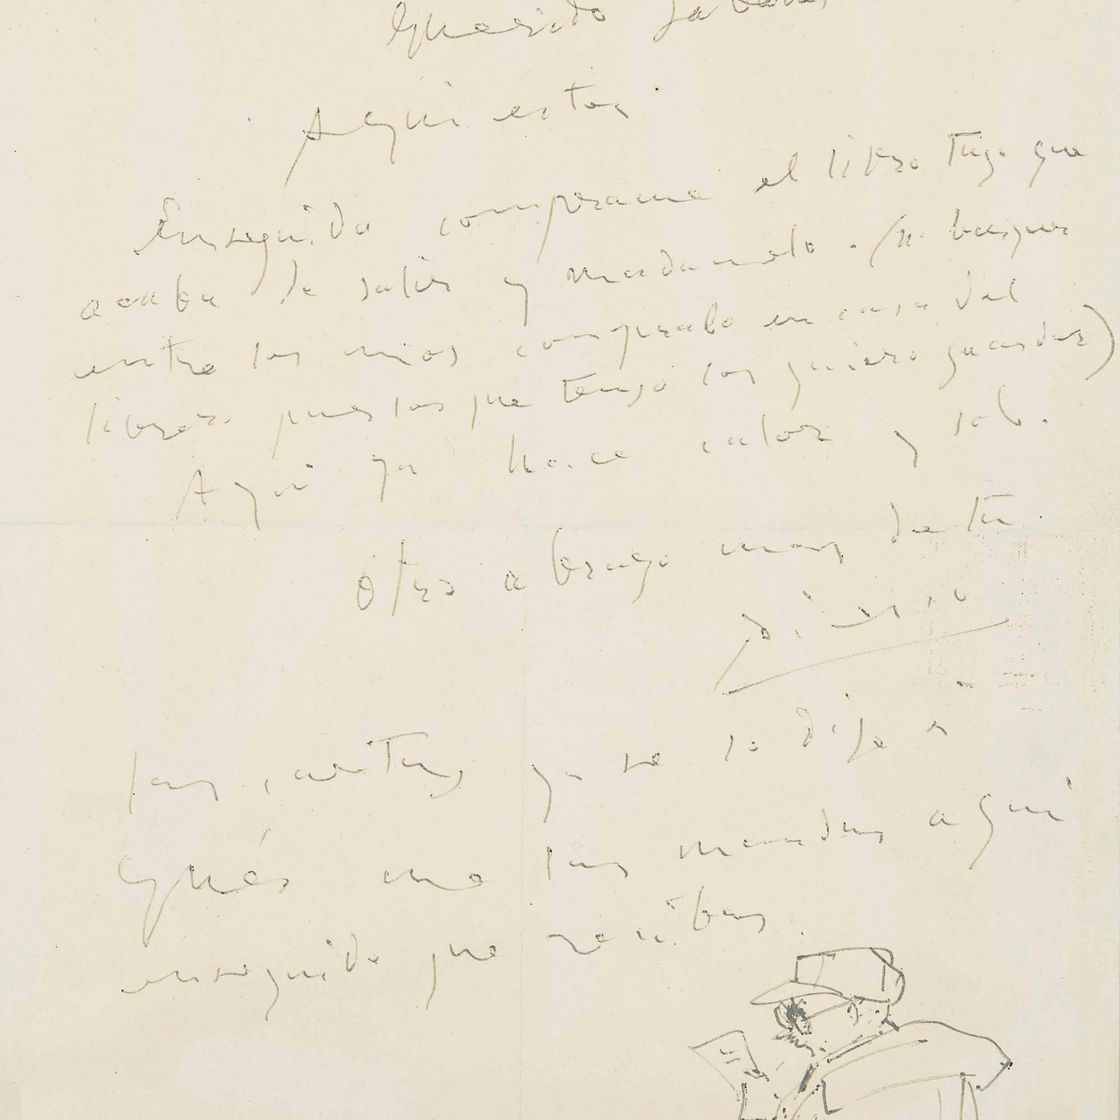 Querido Sabartes
Aqui estoy
Enseguida comprame el libro tuyo que
acaba de salir y mandamelo. (no busques
entre los mios compralo en casa del
librero pues los que tengo los quiero guardar)
Aqui ya hace calor y sol.
Otro abrazo mas de tu
Picasso
las cartas ya se lo dije a
Ynés me las mandas aqui
enseguida que recibas